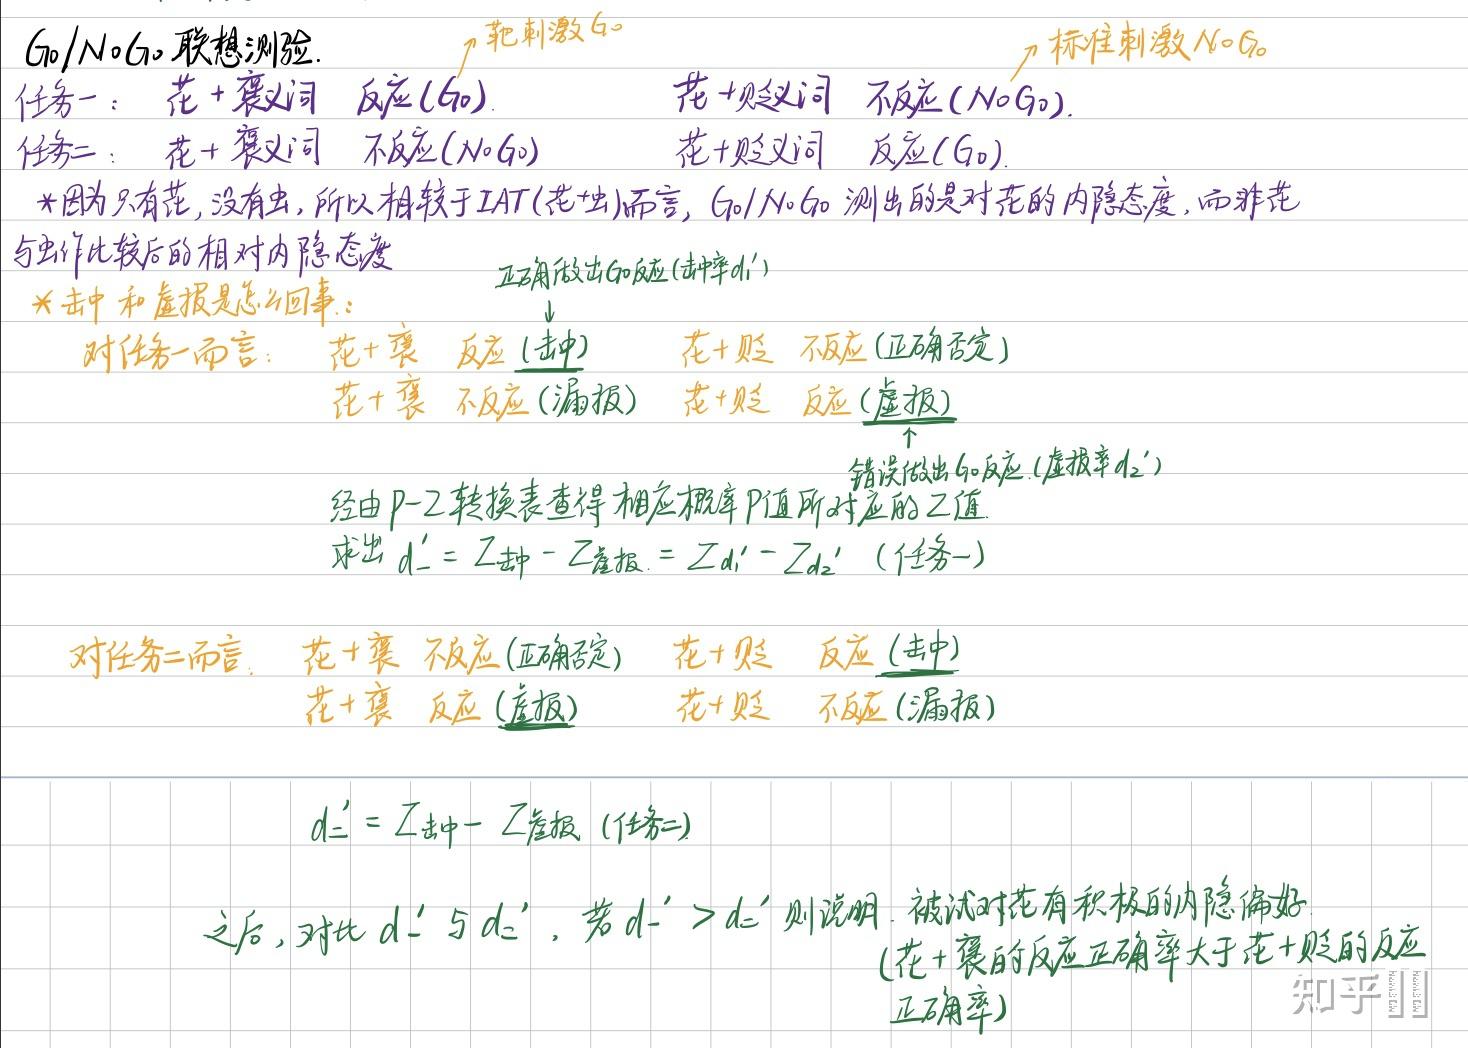 靶刺激Go
标准刺激NoGo
Go/NoGo联想测验.
任务一: 花+褒义词 反应(Go). 花+贬义词 不反应(NoGo).
任务二: 花+褒义词 不反应(NoGo) 花+贬义词 反应(Go).
*因为只有花,没有虫,所以相较于IAT(花+虫)而言,Go/NoGo测出的是对花的内隐态度,而非花
与虫作比较后的相对内隐态度
正确做出Go反应(击中率d₁')
*击中和虚报是怎么回事:
对任务一而言: 花+褒 反应(击中) 花+贬 不反应(正确否定)
花+褒 不反应(漏报) 花+贬 反应(虚报)
错误做出Go反应.(虚报率d₂')
经由P-Z转换表查得相应概率P值所对应的Z值.
求出 d一' = Z击中 - Z虚报. = Zd₁' - Zd₂' (任务一)
对任务二而言. 花+褒 不反应(正确否定) 花+贬 反应(击中)
花+褒 反应(虚报) 花+贬 不反应(漏报)
d二' = Z击中 - Z虚报 (任务二)
之后,对比 d一' 与 d二' ,若 d一' > d二' 则说明.被试对花有积极的内隐偏好.
(花+褒的反应正确率大于花+贬的反应
正确率)
知乎